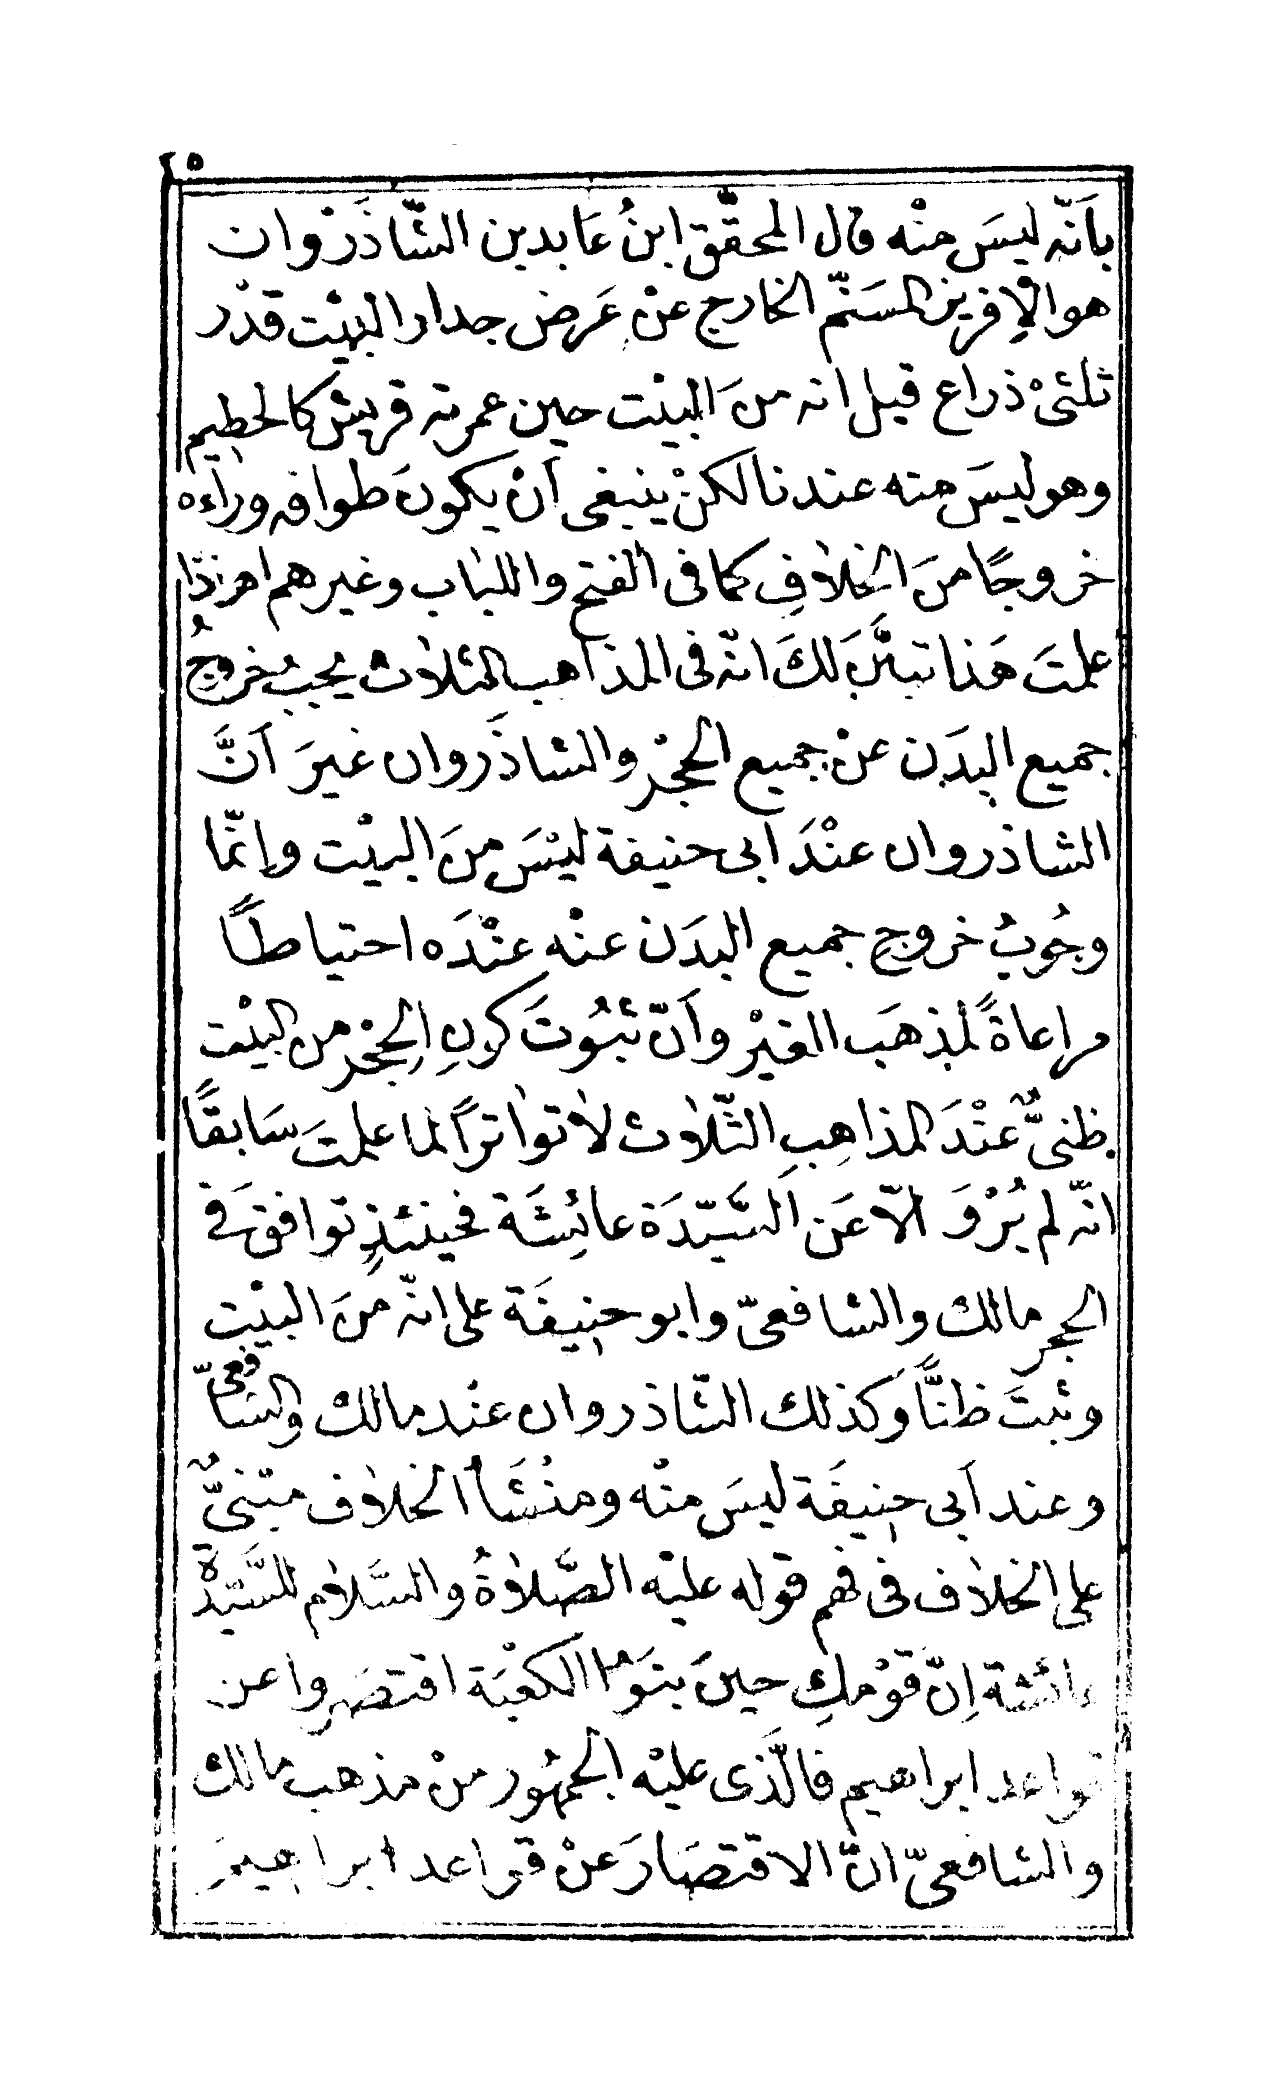 ٢٥
بأَنّه ليسَ منْه قال المحقّق ابنُ عَابدين الشّاذَرْوان
هو الإفريز المسَنّم الخارج عنْ عَرض جدار البيْت قدْر
ثلثىْ ذراع قيل انه منَ البيْت حين عمرته قريش كالحطيم
وهو ليسَ منه عندنا لكنْ ينبغى اَنْ يكونَ طوافه وراَءه
خروجًا منَ الخلاَفِ كما فى الفتح واللباب وغيرهم اهـ اذا
علمتَ هَذا تبيَّنَ لكَ انّه فى المذاهب الثلاث يجبُ خروجُ
جميع البدَن عنْ جميع الحجْر والشاذَروان غيرَ اَنَّ
الشاذروان عنْدَ ابى حنيفة ليْسَ منَ البيْت وإنّما
وجُوبُ خروج جميع البدَن عنْه عنْدَه احتياطًا
مراعاةً لمذهَب الغيْر وأنّ ثبُوتَ كونِ الحِجْر من البيْت
ظنىٌّ عنْدَ المذاهِبِ الثّلاث لا تواتراً لما علمتَ سَابقًا
انّه لم يُرْوَ الاّ عَن السَّيّدَة عائِشَة فحينئذٍ توافقَ فى
الحجر مالك والشافعىّ وابو حنِيفَة على انّه منَ البيْت
وثبتَ ظنًّا وَكذلك الشّاذروان عنْد مالك والشافعىّ
وعند اَبى حنِيفَة ليسَ منْه ومنْشَأ الخلاف مبْنىٌّ
على الخلاف فى فهم قوله عليْه الصَّلاةُ والسَّلام للسَّيّدة
عائشة اِنّ قوْمكِ حينَ بنَوا الكعْبَة اقتصَروا عن
قواعد ابراهيم فالَّذى عليْه الجمهُور منْ مذهب مالك
والشافعىّ انّ الاقتصَارَ عنْ قواعد ابراهيمَ